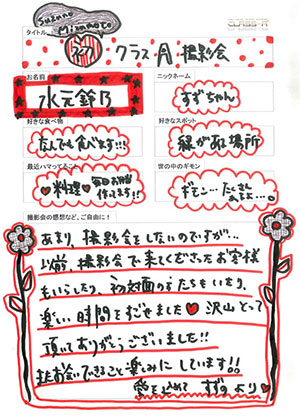 Suzuno Mizumoto
タイトル
クラスA 撮影会
お名前
水元鈴乃
ニックネーム
すずちゃん
好きな食べ物
なんでも食べます!!!
好きなスポット
緑がある場所
最近ハマってること
♥料理♥ 毎日お弁当
作ってます!!
世の中のギモン
ギモン…たくさん
あるよ…。
撮影会の感想など、ご自由に!
あまり、撮影会をしないのですが…
以前、撮影会で来てくださったお客様
もいらしたり、初対面の方たちもいたり、
楽しい時間をすごせました♥ 沢山とって
頂いてありがとうございました!!
またお会いできること楽しみにしています!!
愛を込めて すずの より♥